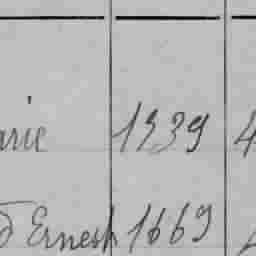 arie 1339 4
d Ernest 1669